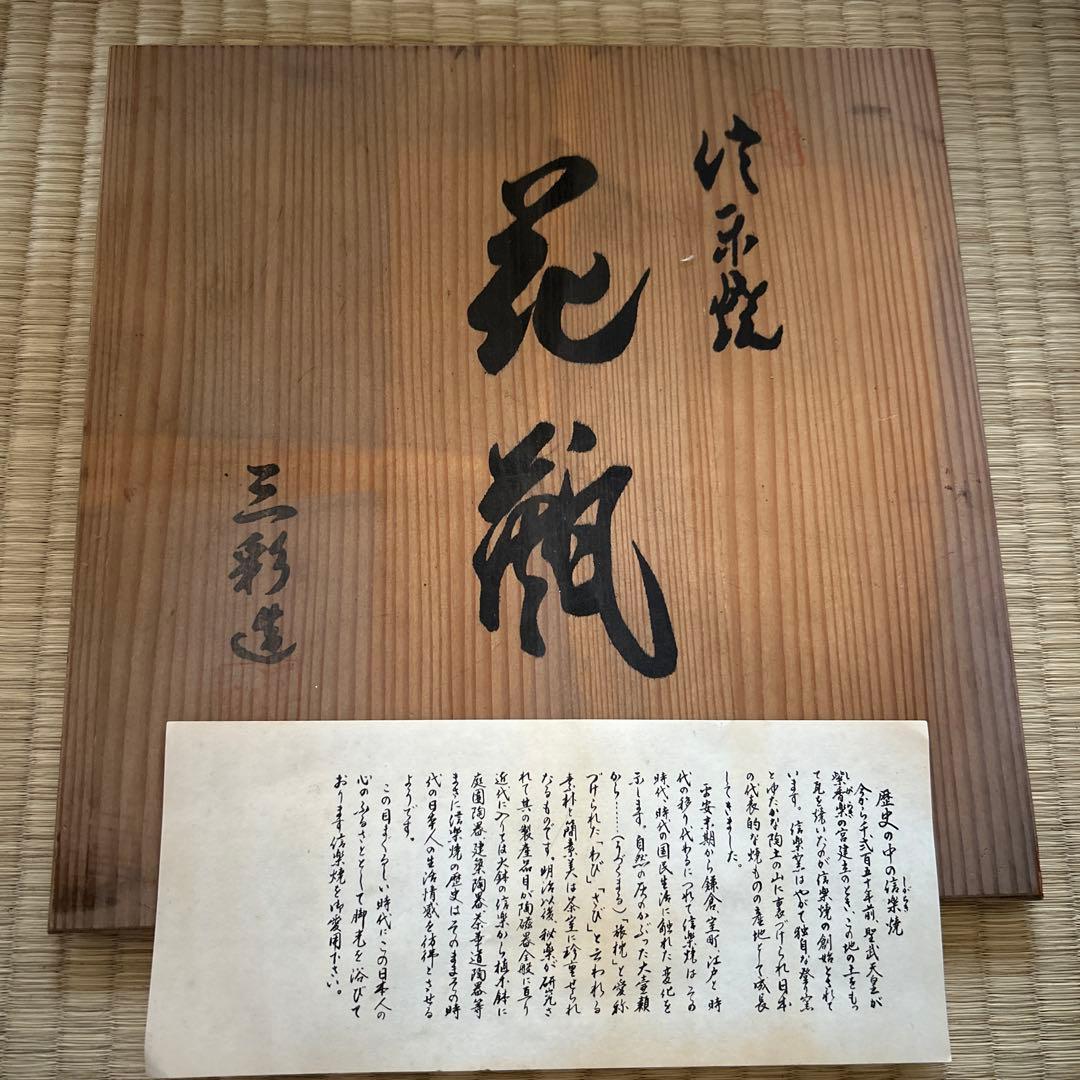 信楽焼
花瓶
三彩造
歴史の中の信楽焼
しがらき
今から千弐百五十年前、聖武天皇が
紫香楽の宮建立のとき、この地の土をもっ
しがらき
て瓦を焼いたのが信楽焼の創始とされて
います。信楽窯はやがて独自な登り窯
とゆたかな陶土の山に裏づけられ日本
の代表的な焼ものの産地として成長
してきました。
平安末期から鎌倉、室町、江戸と時
代の移り代わるにつれて信楽焼はその
時代、時代の国民生活に触れた変化を
示します。自然の灰のかぶった大壷類
から……(うづくまる)「旅枕」と愛称
づけられた「わび」、「さび」と云われる
素朴と簡素美は茶室に珍重せられ
なるものです。明治以後、秘薬が研究さ
れて其の製産品目が陶磁器全般に亘り
近代に入りては火鉢の信楽から植木鉢に
庭園陶器、建築陶器、茶華道陶器等
まさに信楽焼の歴史はそのままその時
代の日本人の生活情感を彷彿とさせる
ようです。
この目まぐるしい時代にこの日本人の
心のふるさととして脚光を浴びて
おります信楽焼を御愛用下さい。